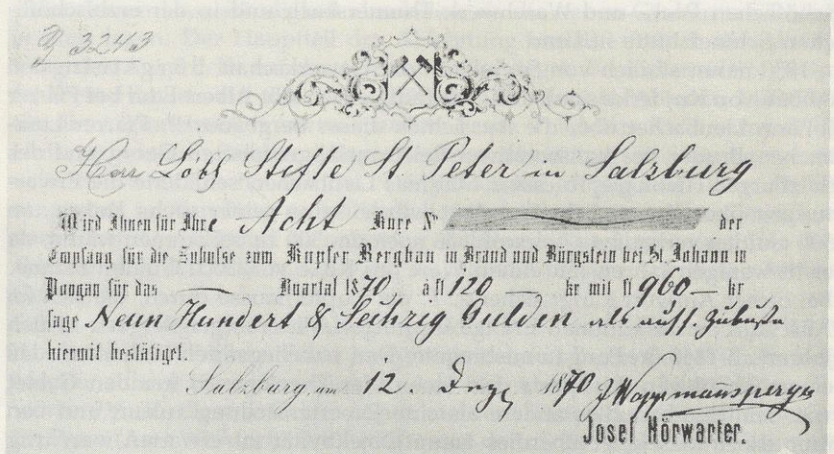 N 3243
Herr Löbl Stifte St Peter in Salzburg
Wird Ihnen für Ihre Acht Kuxe N der
Empfang für die Zubusse zum Kupfer Bergbau in Brand und Bürgstein bei St. Johann in
Pongau für das — Quartal 1870 à fl 120 — kr mit fl 960 — kr
sage Neun Hundert & Sechzig Gulden als auss. Zubusse
hiermit bestätiget.
Salzburg am 12. Dez 1870 J Wappmannsperger
Josef Hörwarter.